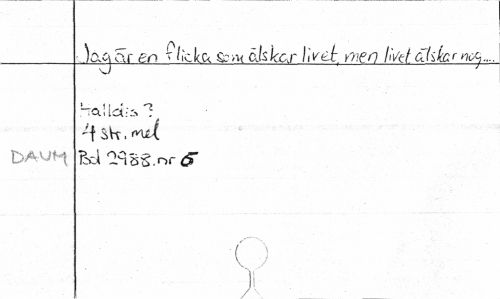 Jag är en flicka som älskar livet, men livet älskar nog....
4 str. mel
DAUM Bd 2988. nr 5